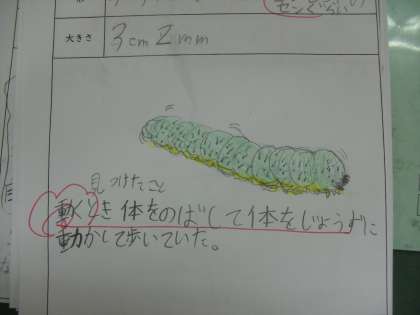 センぐらい
大きさ 3cm 2mm
見つけたこと
動くとき体をのばして体をじょうずに
動かして歩いていた。